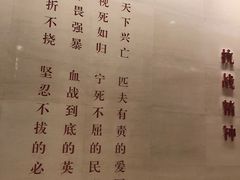 抗战精神
天下兴亡 匹夫有责的爱
视死如归 宁死不屈的民
畏强暴 血战到底的英
折不挠 坚忍不拔的必